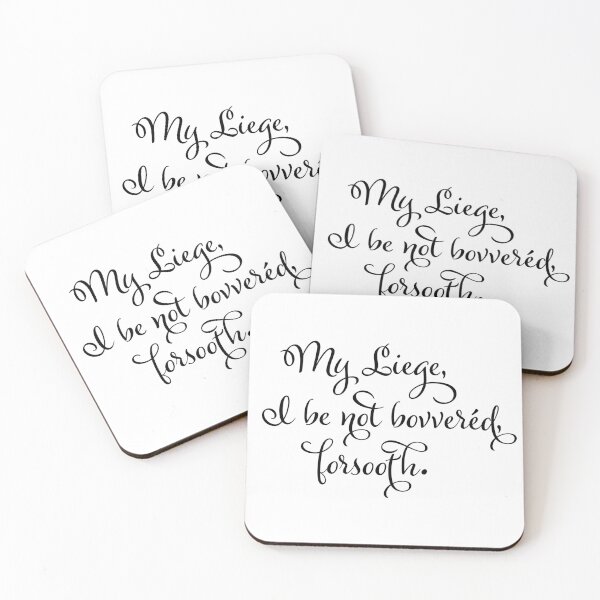 My Liege,
I be not bovveré
My Liege,
I be not bovveréd,
forsooth.
My Liege,
I be not bovveréd,
forsooth.
My Liege,
I be not bovveréd,
forsooth.